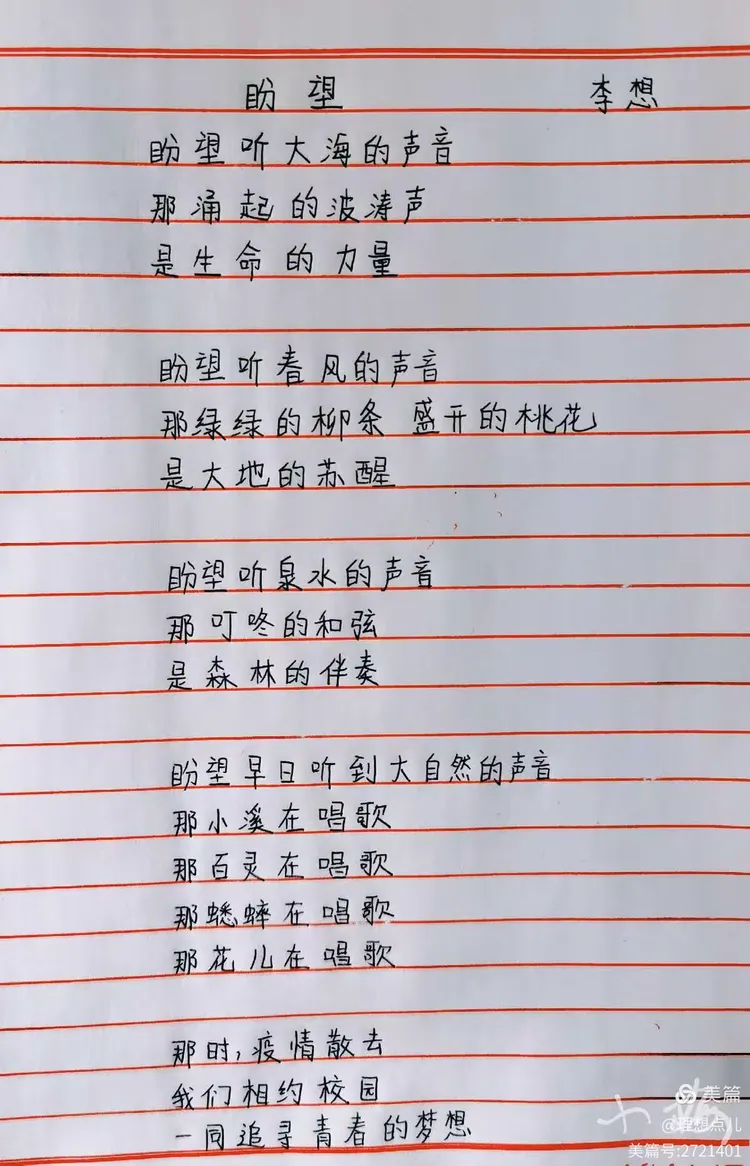 盼望 李想
盼望听大海的声音
那涌起的波涛声
是生命的力量
盼望听春风的声音
那绿绿的柳条 盛开的桃花
是大地的苏醒
盼望听泉水的声音
那叮咚的和弦
是森林的伴奏
盼望早日听到大自然的声音
那小溪在唱歌
那百灵在唱歌
那蟋蟀在唱歌
那花儿在唱歌
那时,疫情散去
我们相约校园
一同追寻青春的梦想
美篇
@理想点儿
美篇号:2721401